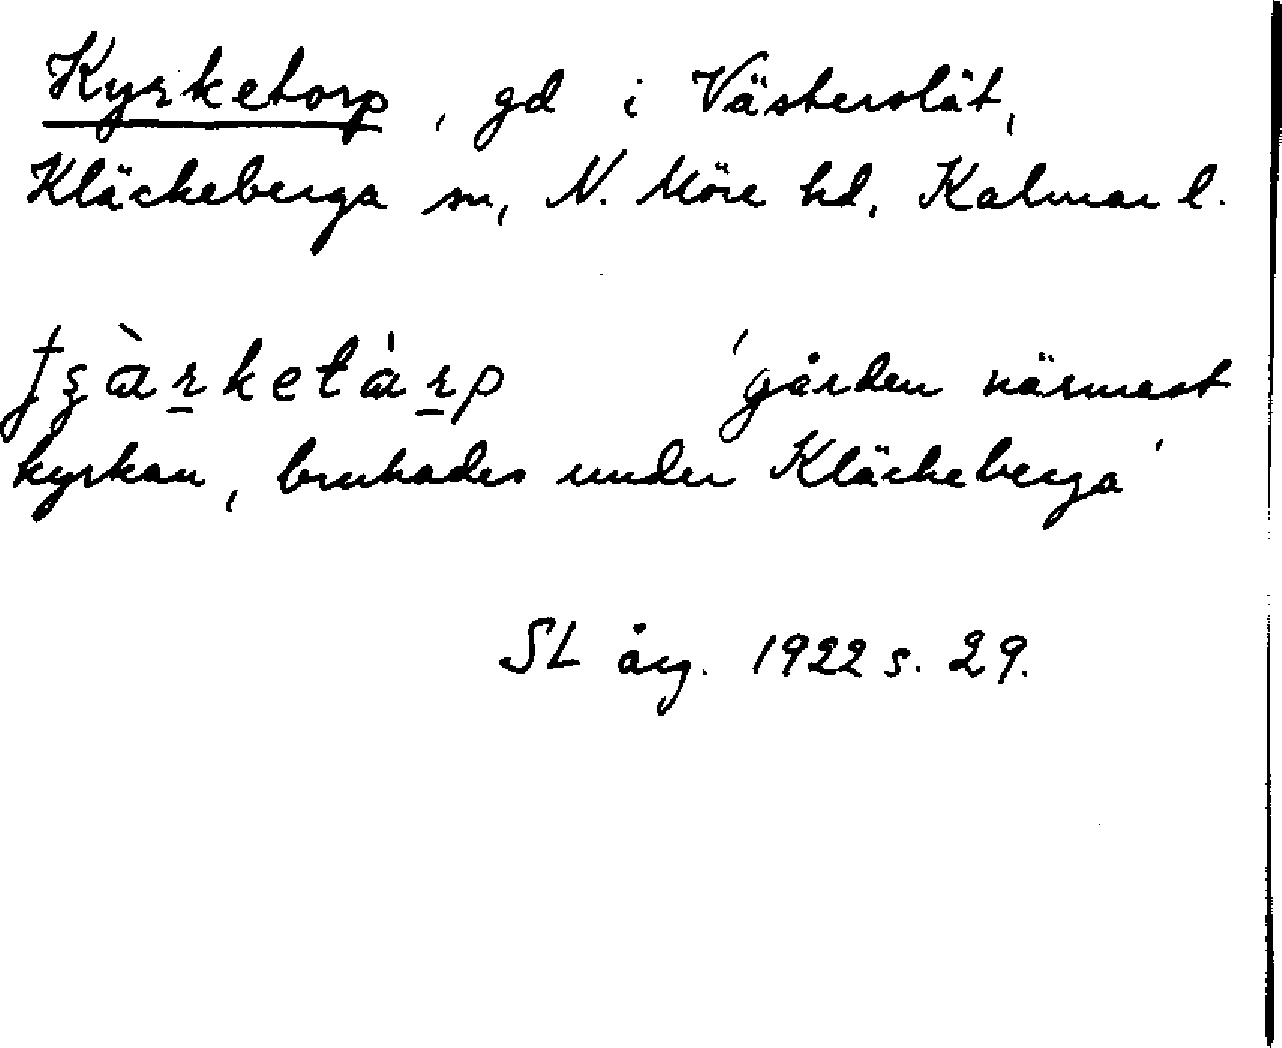 Kyrketorp, gd i Västerslät,
Kläckeberga sn, N. Möre hd, Kalmar l.
'gården närmast
kyrkan, brukades under Kläckeberga'
SL årg. 1922 s. 29.